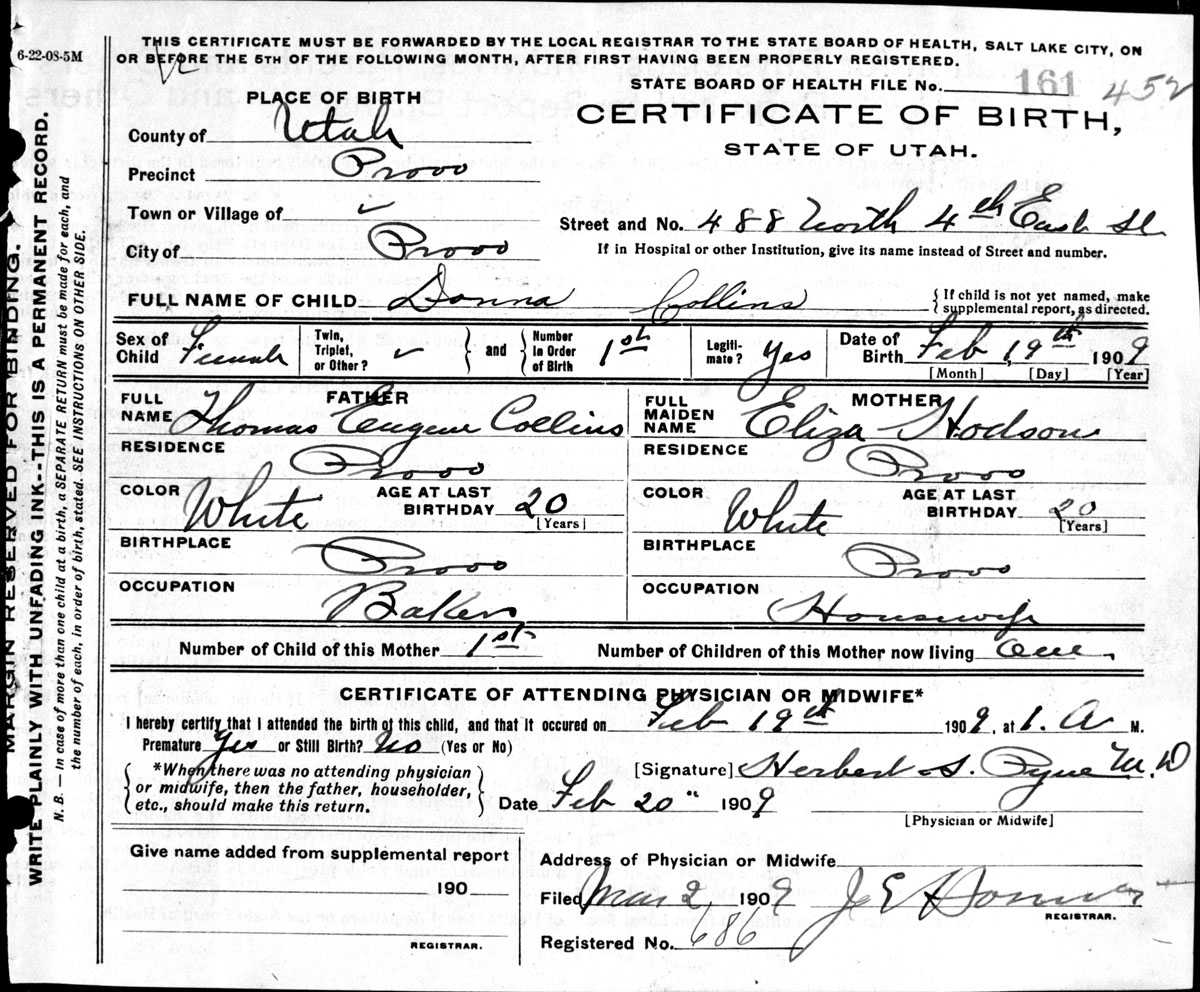 6-22-08-5M
THIS CERTIFICATE MUST BE FORWARDED BY THE LOCAL REGISTRAR TO THE STATE BOARD OF HEALTH, SALT LAKE CITY, ON
OR BEFORE THE 5TH OF THE FOLLOWING MONTH, AFTER FIRST HAVING BEEN PROPERLY REGISTERED.
STATE BOARD OF HEALTH FILE No. 161 452
PLACE OF BIRTH
CERTIFICATE OF BIRTH,
STATE OF UTAH.
County of Utah
Precinct Provo
Town or Village of ✓
Street and No. 488 North 4th East St
City of Provo
If in Hospital or other Institution, give its name instead of Street and number.
FULL NAME OF CHILD Donna Collins { If child is not yet named, make
supplemental report, as directed.
Sex of Child Female Twin, Triplet, or Other? ✓ } and { Number in Order of Birth 1st Legiti-mate? Yes Date of Birth Feb 19th 1909
[Month] [Day] [Year]
FATHER MOTHER
FULL NAME Thomas Eugene Collins FULL MAIDEN NAME Eliza Hodson
RESIDENCE Provo RESIDENCE Provo
COLOR White AGE AT LAST BIRTHDAY 20 [Years] COLOR White AGE AT LAST BIRTHDAY 20 [Years]
BIRTHPLACE Provo BIRTHPLACE Provo
OCCUPATION Baker OCCUPATION Housewife
Number of Child of this Mother 1st Number of Children of this Mother now living One
CERTIFICATE OF ATTENDING PHYSICIAN OR MIDWIFE*
I hereby certify that I attended the birth of this child, and that it occured on Feb 19th 1909, at 1. A M.
Premature Yes or Still Birth? No (Yes or No)
{ *When there was no attending physician
or midwife, then the father, householder,
etc., should make this return. }
[Signature] Herbert S. Pyne M.D
Date Feb 20" 1909
[Physician or Midwife]
Give name added from supplemental report
190
REGISTRAR.
Address of Physician or Midwife
Filed Mar 2, 1909
REGISTRAR.
Registered No. 686
MARGIN RESERVED FOR BINDING.
WRITE PLAINLY WITH UNFADING INK--THIS IS A PERMANENT RECORD.
N. B. — In case of more than one child at a birth, a SEPARATE RETURN must be made for each, and
the number of each, in order of birth, stated. SEE INSTRUCTIONS ON OTHER SIDE.